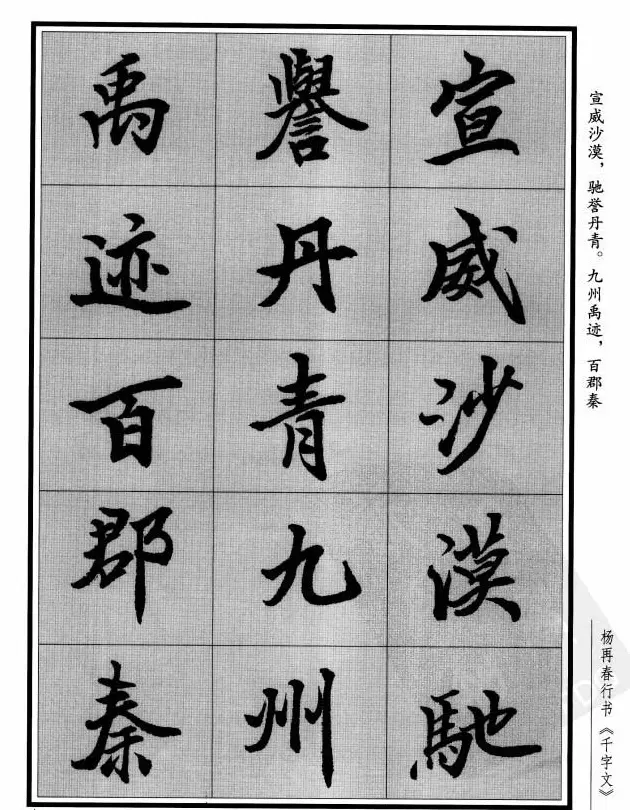 宣威沙漠馳
譽丹青九州
禹迹百郡秦
宣威沙漠，驰誉丹青。九州禹迹，百郡秦
杨再春行书《千字文》